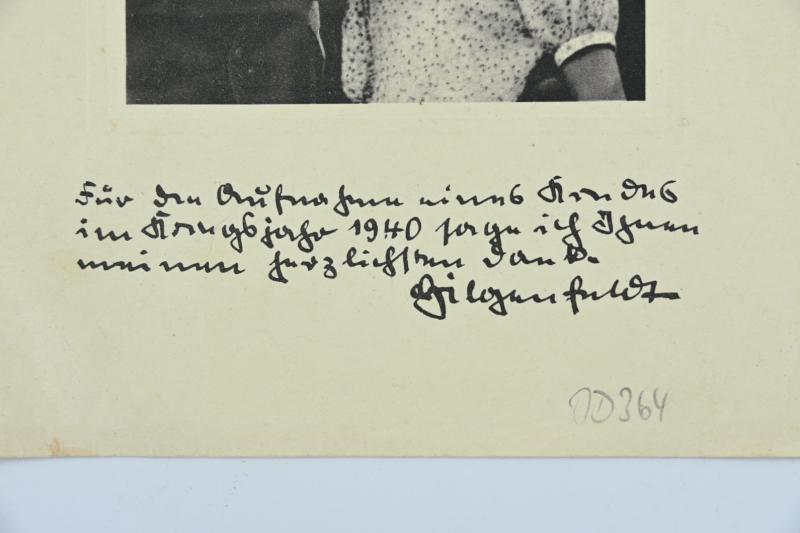 Für die Aufnahme eines Kindes
im Kriegsjahr 1940 sage ich Ihnen
meinen herzlichsten Dank.
Hilgenfeldt
OD364